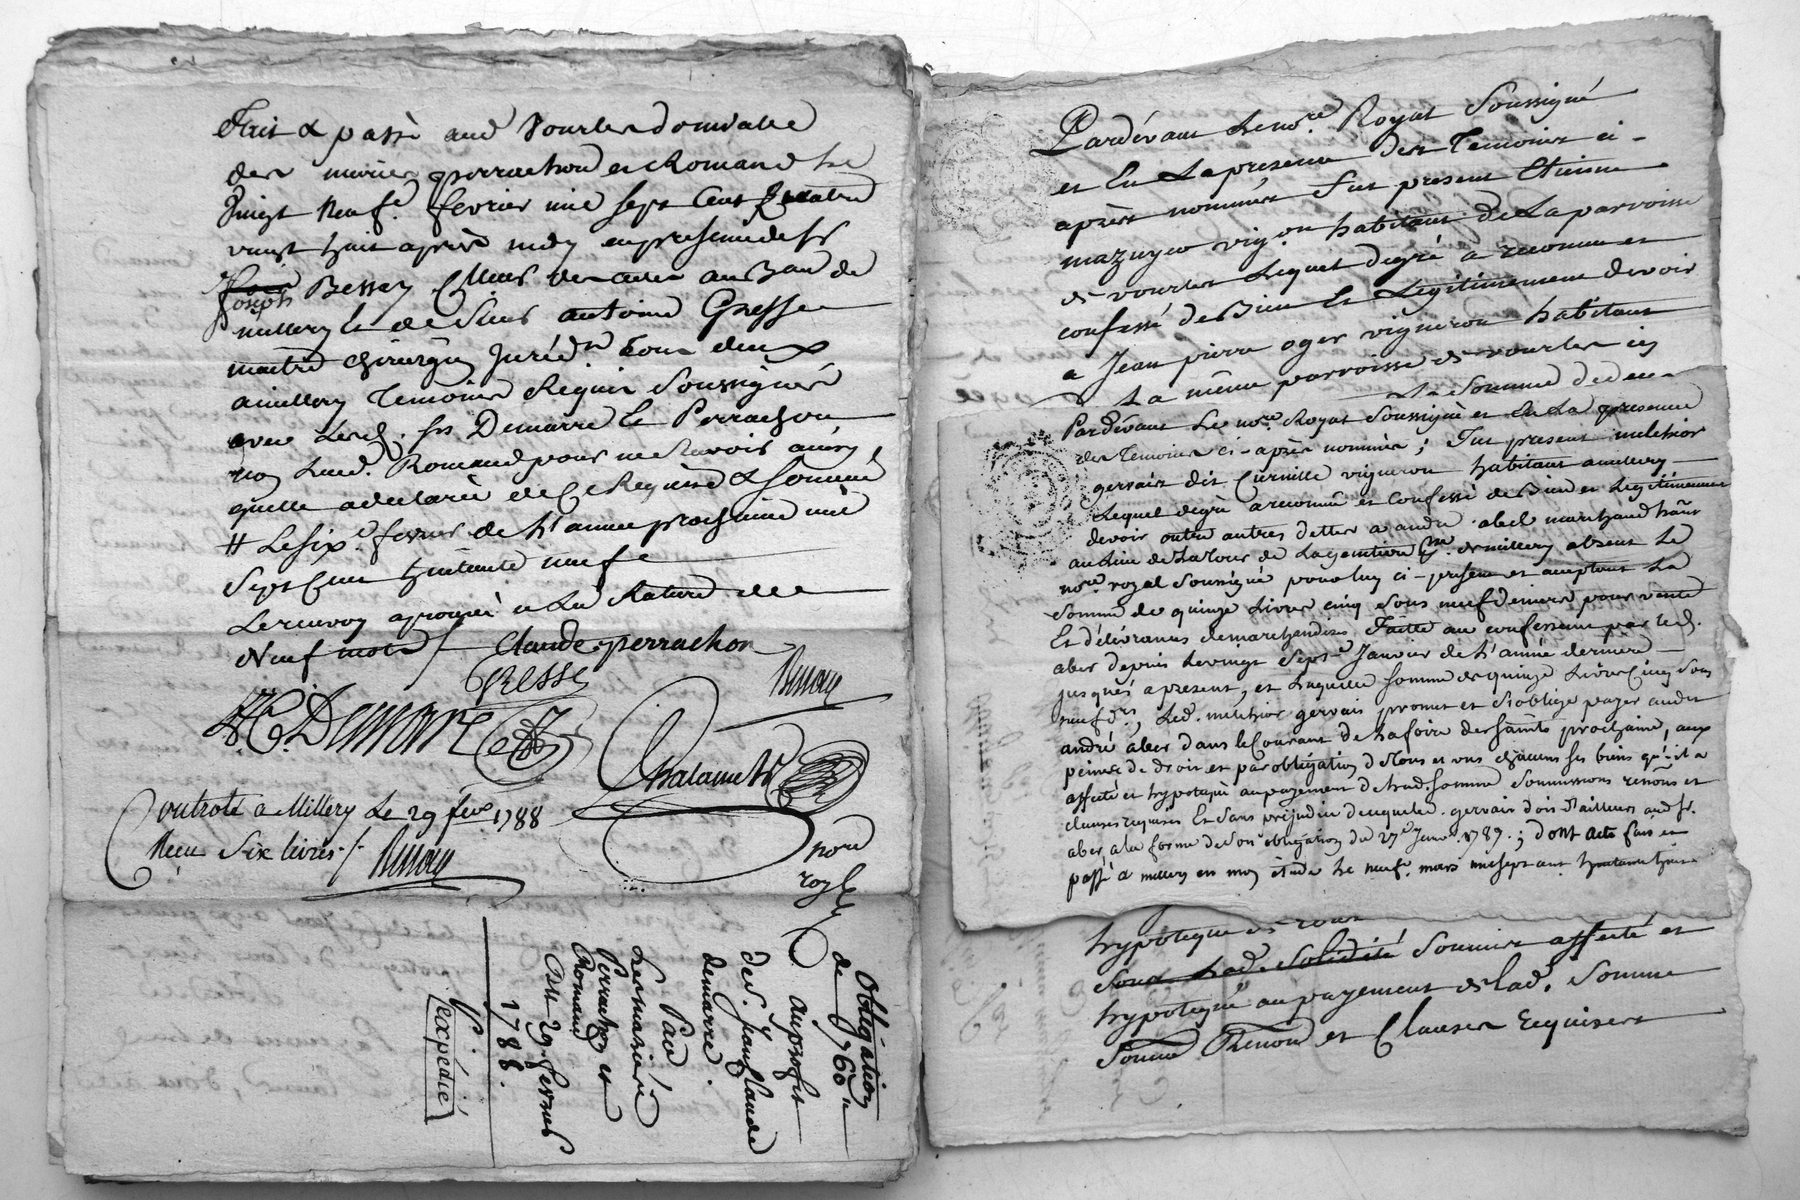 Fait & passé aud Vourles domicille
des mariés perrachon et Romand le
vingt neuf. fevrier mil sept cent quatre
vingt huit après midy en presence de Sr
Joseph Bessey de
millery & de Sieur antoine Gresse
maitre chirurgien juré dt tous deux
a millery Temoins Requis Soussignés
avec lesd. srs Demarre et Perrachon
non lad. Romand pour ne savoir ainsy
quelle a declaré de ce Requise & sommée
# le six fevrier de l'année prochaine mil
sept cent huitante neuf
Le renvoy aprouvé et la Rature de
Neuf mots /. Claude perrachon
Gresse
J.C. Demare
Controlé a Millery Le 29 fevr 1788
Recu Six livres /.
nore
royal
Obligation
de 760
au profit
de s. Jean Claude
demarre.
Par
Les mariés
Perrachon et
Romand
Du 29. fevrier
1788.
expédié
Pardevant le nore. Royal Soussigné
et En La presence des Temoins ci-
après nommés fut present Etienne
mazuyer vigon. habitant de La parroisse
de vourles Lequel degré a reconnu et
confessé de Bien Et Legitimement devoir
a Jean pierre oger vigneron habitant
La même parroisse de vourles ici
La Somme de
Pardevant Le nore. Royal Soussigné et En La presence
des Temoins ci-après nommés; Fut present melchior
gervais dit Curnille vigneron habitant a millery
Lequel degré a reconnu et Confessé de Bien et Legitimement
devoir outre autres dettes a andré abel marchand
au Lieu de La Tour de millery absent Le
nore. royal Soussigné pour luy ci-present et acceptant La
Somme de quinze Livres cinq Sous neuf deniers pour vente
Et délivrances de marchandises Faitte au confesseur par led.
abel depuis Le vingt Sept Janvier de l'année derniere
jusques a present, et laquelle Somme de quinze Livres Cinq Sous
neuf drs, Led. melchior gervais promet et s'oblige payer audit
andré abel dans le Courant de La foire des Saints prochaine, aux
peines de droit et par obligation de Tous et uns chacuns ses biens qu'il a
affecté et hypotequé au payement de lad. Somme Soumissions renons et
clauses requises Et Sans prejudice de ce que led. gervais doit d'ailleurs aud Sr.
abel a la forme de Son obligation du 27e Janv. 1787.; dont acte fait et
passé a millery en mon étude le neuf. mars mil sept cent huitante huit
hypoteque
Sous Lad. Solidité Soumis affecté et
hypotequé au payement de lad. Somme
Soumis Renon et Clauses requises